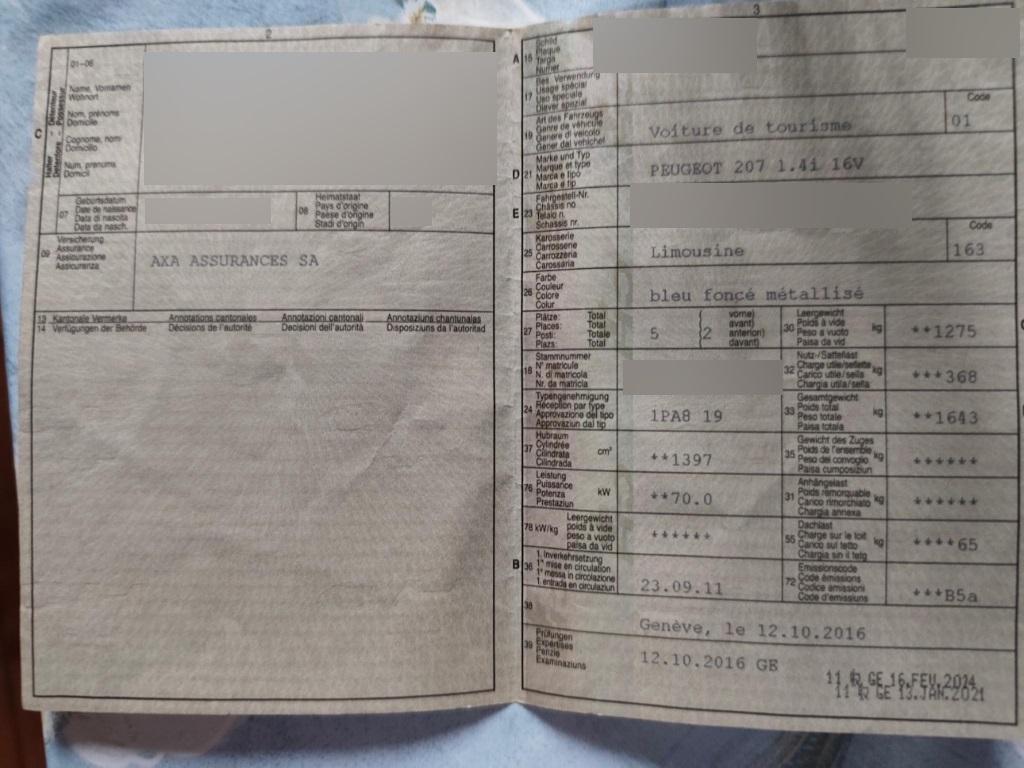 2
01-06
C
Halter - Détenteur
Detentore - Possessur
Name, Vornamen
Wohnort
Nom, prénoms
Domicile
Cognome, nomi
Domicilio
Num, prenums
Domicil
07
Geburtsdatum
Date de naissance
Data di nascita
Data da nasch.
08
Heimatstaat
Pays d'origine
Paese d'origine
Stadi d'origin
09
Versicherung
Assurance
Assicurazione
Assicuranza
AXA ASSURANCES SA
13 Kantonale Vermerke Annotations cantonales Annotazioni cantonali Annotaziuns chantunalas
14 Verfügungen der Behörde Décisions de l'autorité Decisioni dell'autorità Disposiziuns da l'autoritad
3
A
15
Schild
Plaque
Targa
Numer
17
Bes. Verwendung
Usage spécial
Uso speciale
Diever spezial
19
Art des Fahrzeugs
Genre de véhicule
Genere di veicolo
Gener dal vehichel
Voiture de tourisme
Code
01
D
21
Marke und Typ
Marque et type
Marca e tipo
Marca e tip
PEUGEOT 207 1.4i 16V
E
23
Fahrgestell-Nr.
Châssis no
Telaio n.
Schassis nr.
25
Karosserie
Carrosserie
Carrozzeria
Carossaria
Limousine
Code
163
26
Farbe
Couleur
Colore
Colur
bleu foncé métallisé
27
Plätze: Total
Places: Total
Posti: Totale
Plazs: Total
5
2
vorne)
avant)
anteriori)
davant)
30
Leergewicht
Poids à vide
Peso a vuoto
Paisa da vid
kg
**1275
18
Stammnummer
N° matricule
N. di matricola
Nr. da matricla
32
Nutz-/Sattellast
Charge utile/sellette
Carico utile/sella
Chargia utila/sella
kg
***368
24
Typengenehmigung
Réception par type
Approvazione del tipo
Approvaziun dal tip
1PA8 19
33
Gesamtgewicht
Poids total
Peso totale
Paisa totala
kg
**1643
37
Hubraum
Cylindrée
Cilindrata
Cilindrada
cm³
**1397
35
Gewicht des Zuges
Poids de l'ensemble
Peso del convoglio
Paisa cumposiziun
kg
******
76
Leistung
Puissance
Potenza
Prestaziun
kW
**70.0
31
Anhängelast
Poids remorquable
Carico rimorchiato
Chargia annexa
kg
******
78 kW/kg
Leergewicht
poids à vide
peso a vuoto
paisa da vid
******
55
Dachlast
Charge sur le toit
Carico sul tetto
Chargia sin il tetg
kg
****65
B
36
1. Inverkehrsetzung
1re mise en circulation
1a messa in circolazione
1. entrada en circulaziun
23.09.11
72
Emissionscode
Code émissions
Codice emissioni
Code d'emissiuns
***B5a
38
Genève, le 12.10.2016
39
Prüfungen
Expertises
Perizie
Examinaziuns
12.10.2016 GE
11 GE 16.FEV.2014
11 GE 13.JAN.2021